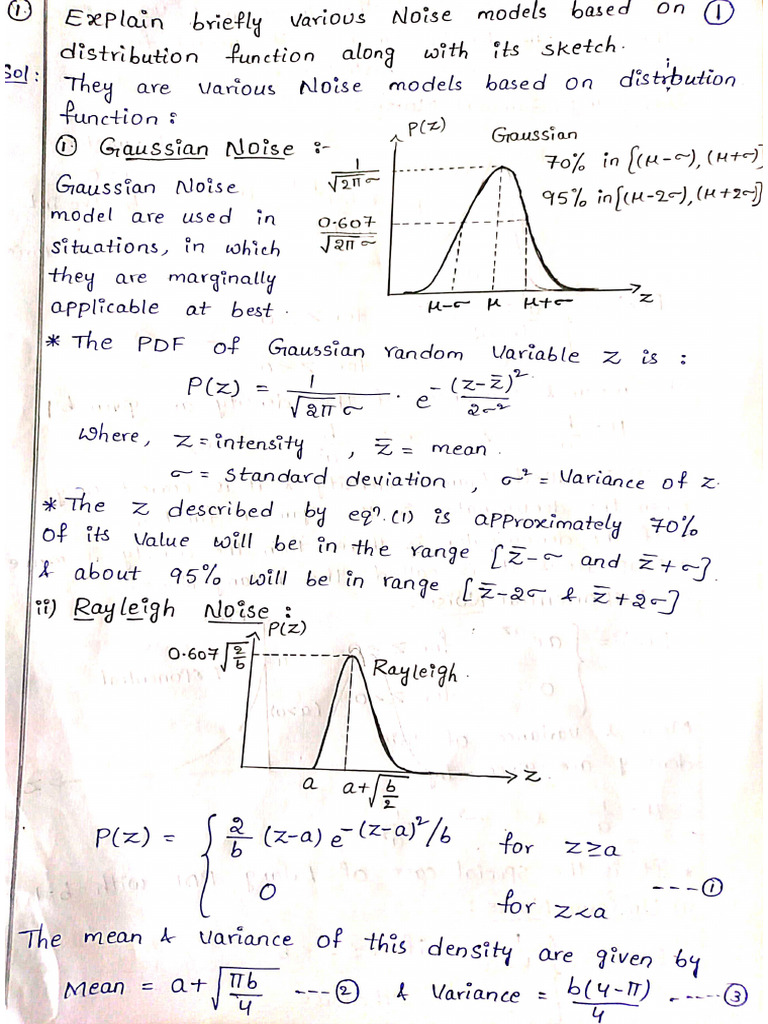 ①. Explain briefly various Noise models based on ①
distribution function along with its sketch.
Sol: They are various Noise models based on distribution
function:
① Gaussian Noise :-
Gaussian Noise
model are used in
situations, in which
they are marginally
applicable at best.
P(z)
Gaussian
70% in [(μ-σ), (μ+σ)]
95% in [(μ-2σ), (μ+2σ)]
1/√2π σ
0.607/√2π σ
μ-σ μ μ+σ z
* The PDF of Gaussian random Variable z is :
P(z) = 1/√2π σ . e^-(z-z̄)²/2σ²
where, z = intensity , z̄ = mean.
σ = standard deviation , σ² = Variance of z.
* The z described by eqⁿ.(1) is approximately 70%
of its value will be in the range [z̄-σ and z̄+σ].
& about 95% will be in range [z̄-2σ & z̄+2σ]
ii) Rayleigh Noise :
P(z)
0.607√2/b
Rayleigh.
a a+√b/2 z
P(z) = { 2/b (z-a) e^-(z-a)²/b for z≥a
0 for z<a ---①
The mean & variance of this density are given by
Mean = a+√πb/4 ---② & Variance = b(4-π)/4 ----③